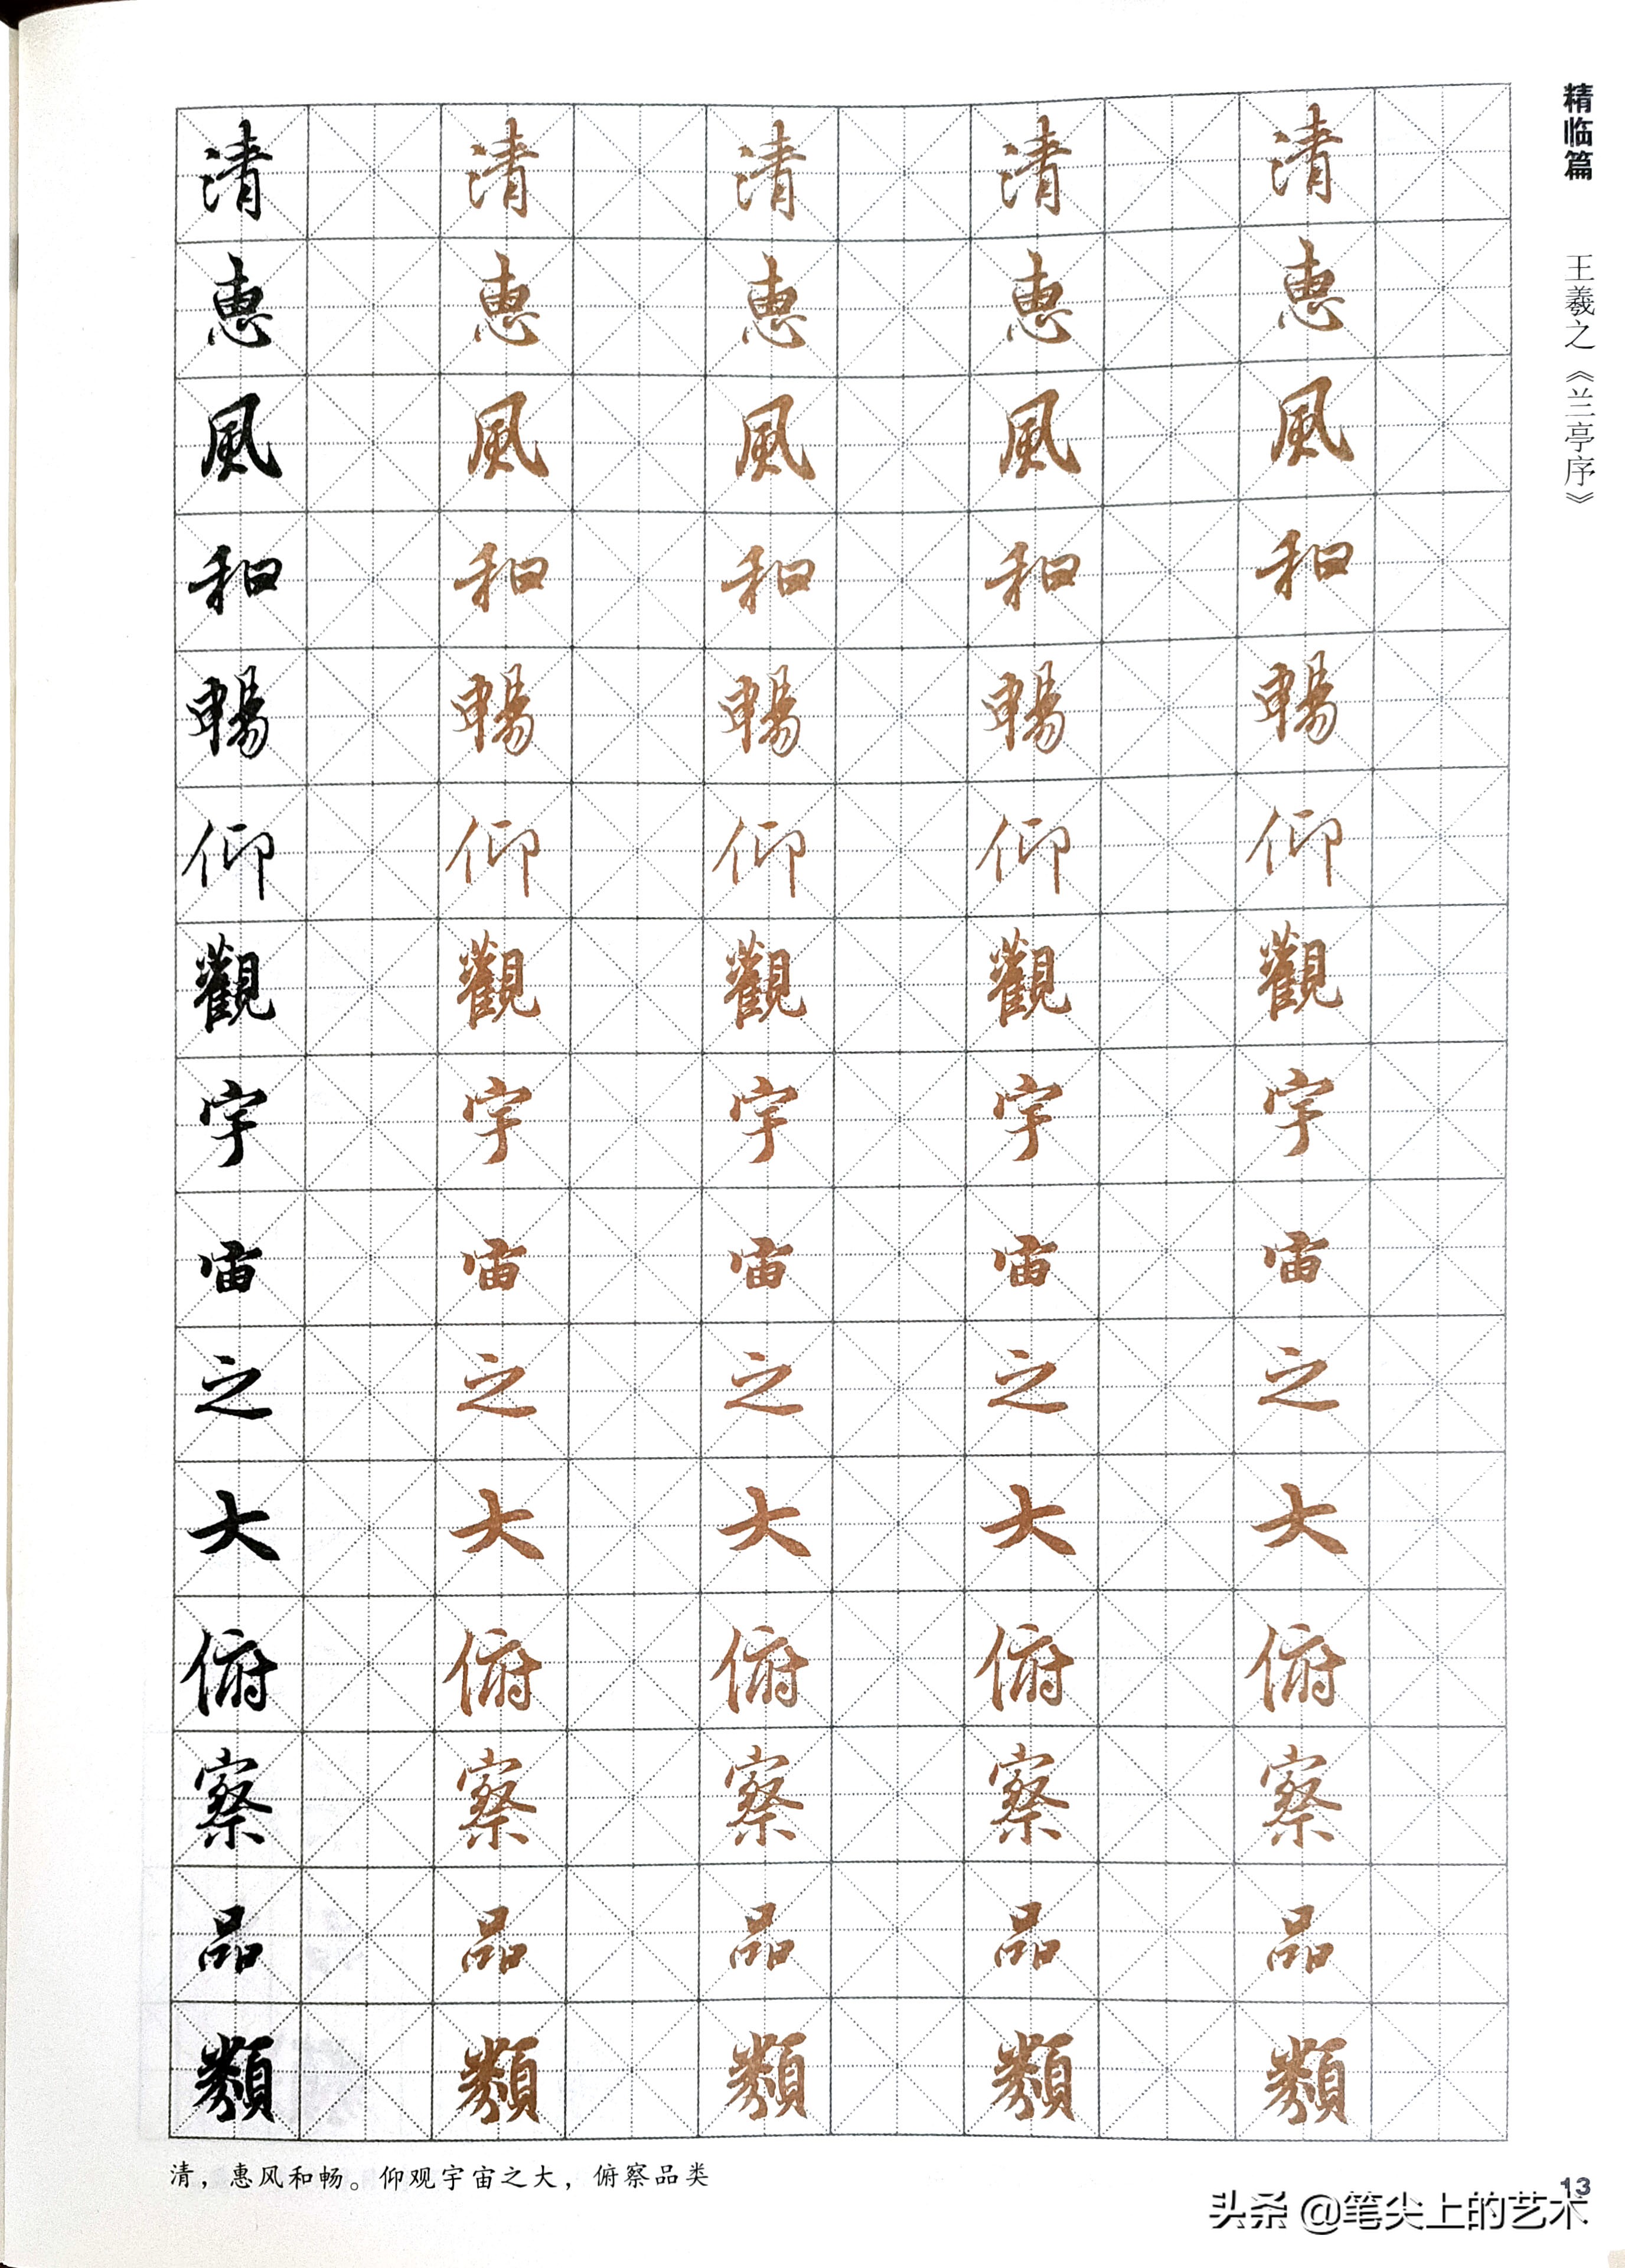 精临篇 王羲之《兰亭序》
清 清 清 清 清
惠 惠 惠 惠 惠
風 風 風 風 風
和 和 和 和 和
暢 暢 暢 暢 暢
仰 仰 仰 仰 仰
觀 觀 觀 觀 觀
宇 宇 宇 宇 宇
宙 宙 宙 宙 宙
之 之 之 之 之
大 大 大 大 大
俯 俯 俯 俯 俯
察 察 察 察 察
品 品 品 品 品
類 類 類 類 類
清，惠风和畅。仰观宇宙之大，俯察品类
13
头条 @笔尖上的艺术